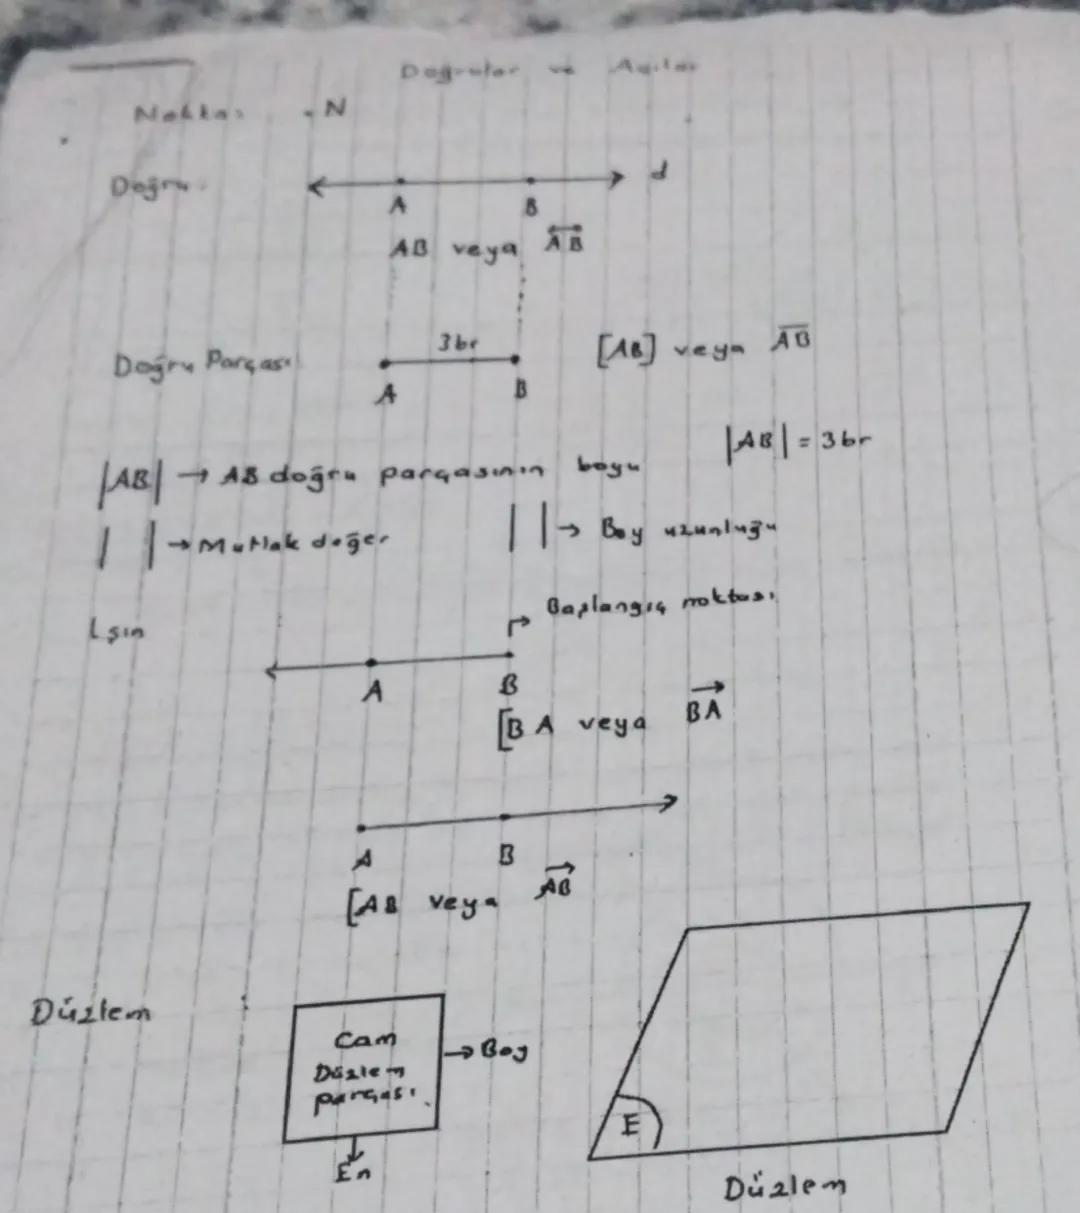 Doğrular ve Açılar
Nokta: . N
Doğru: d
A B
AB veya AB
Doğru Parçası 3br [AB] veya AB
A B
|AB| = 3br
|AB| → AB doğru parçasının boyu
| | → Mutlak değer | | → Boy uzunluğu
Işın Başlangıç noktası
A B
[BA veya BA
A B
[AB veya AB
Düzlem :
Cam
Düzlem
parçası
→ Boy
En
E
Düzlem